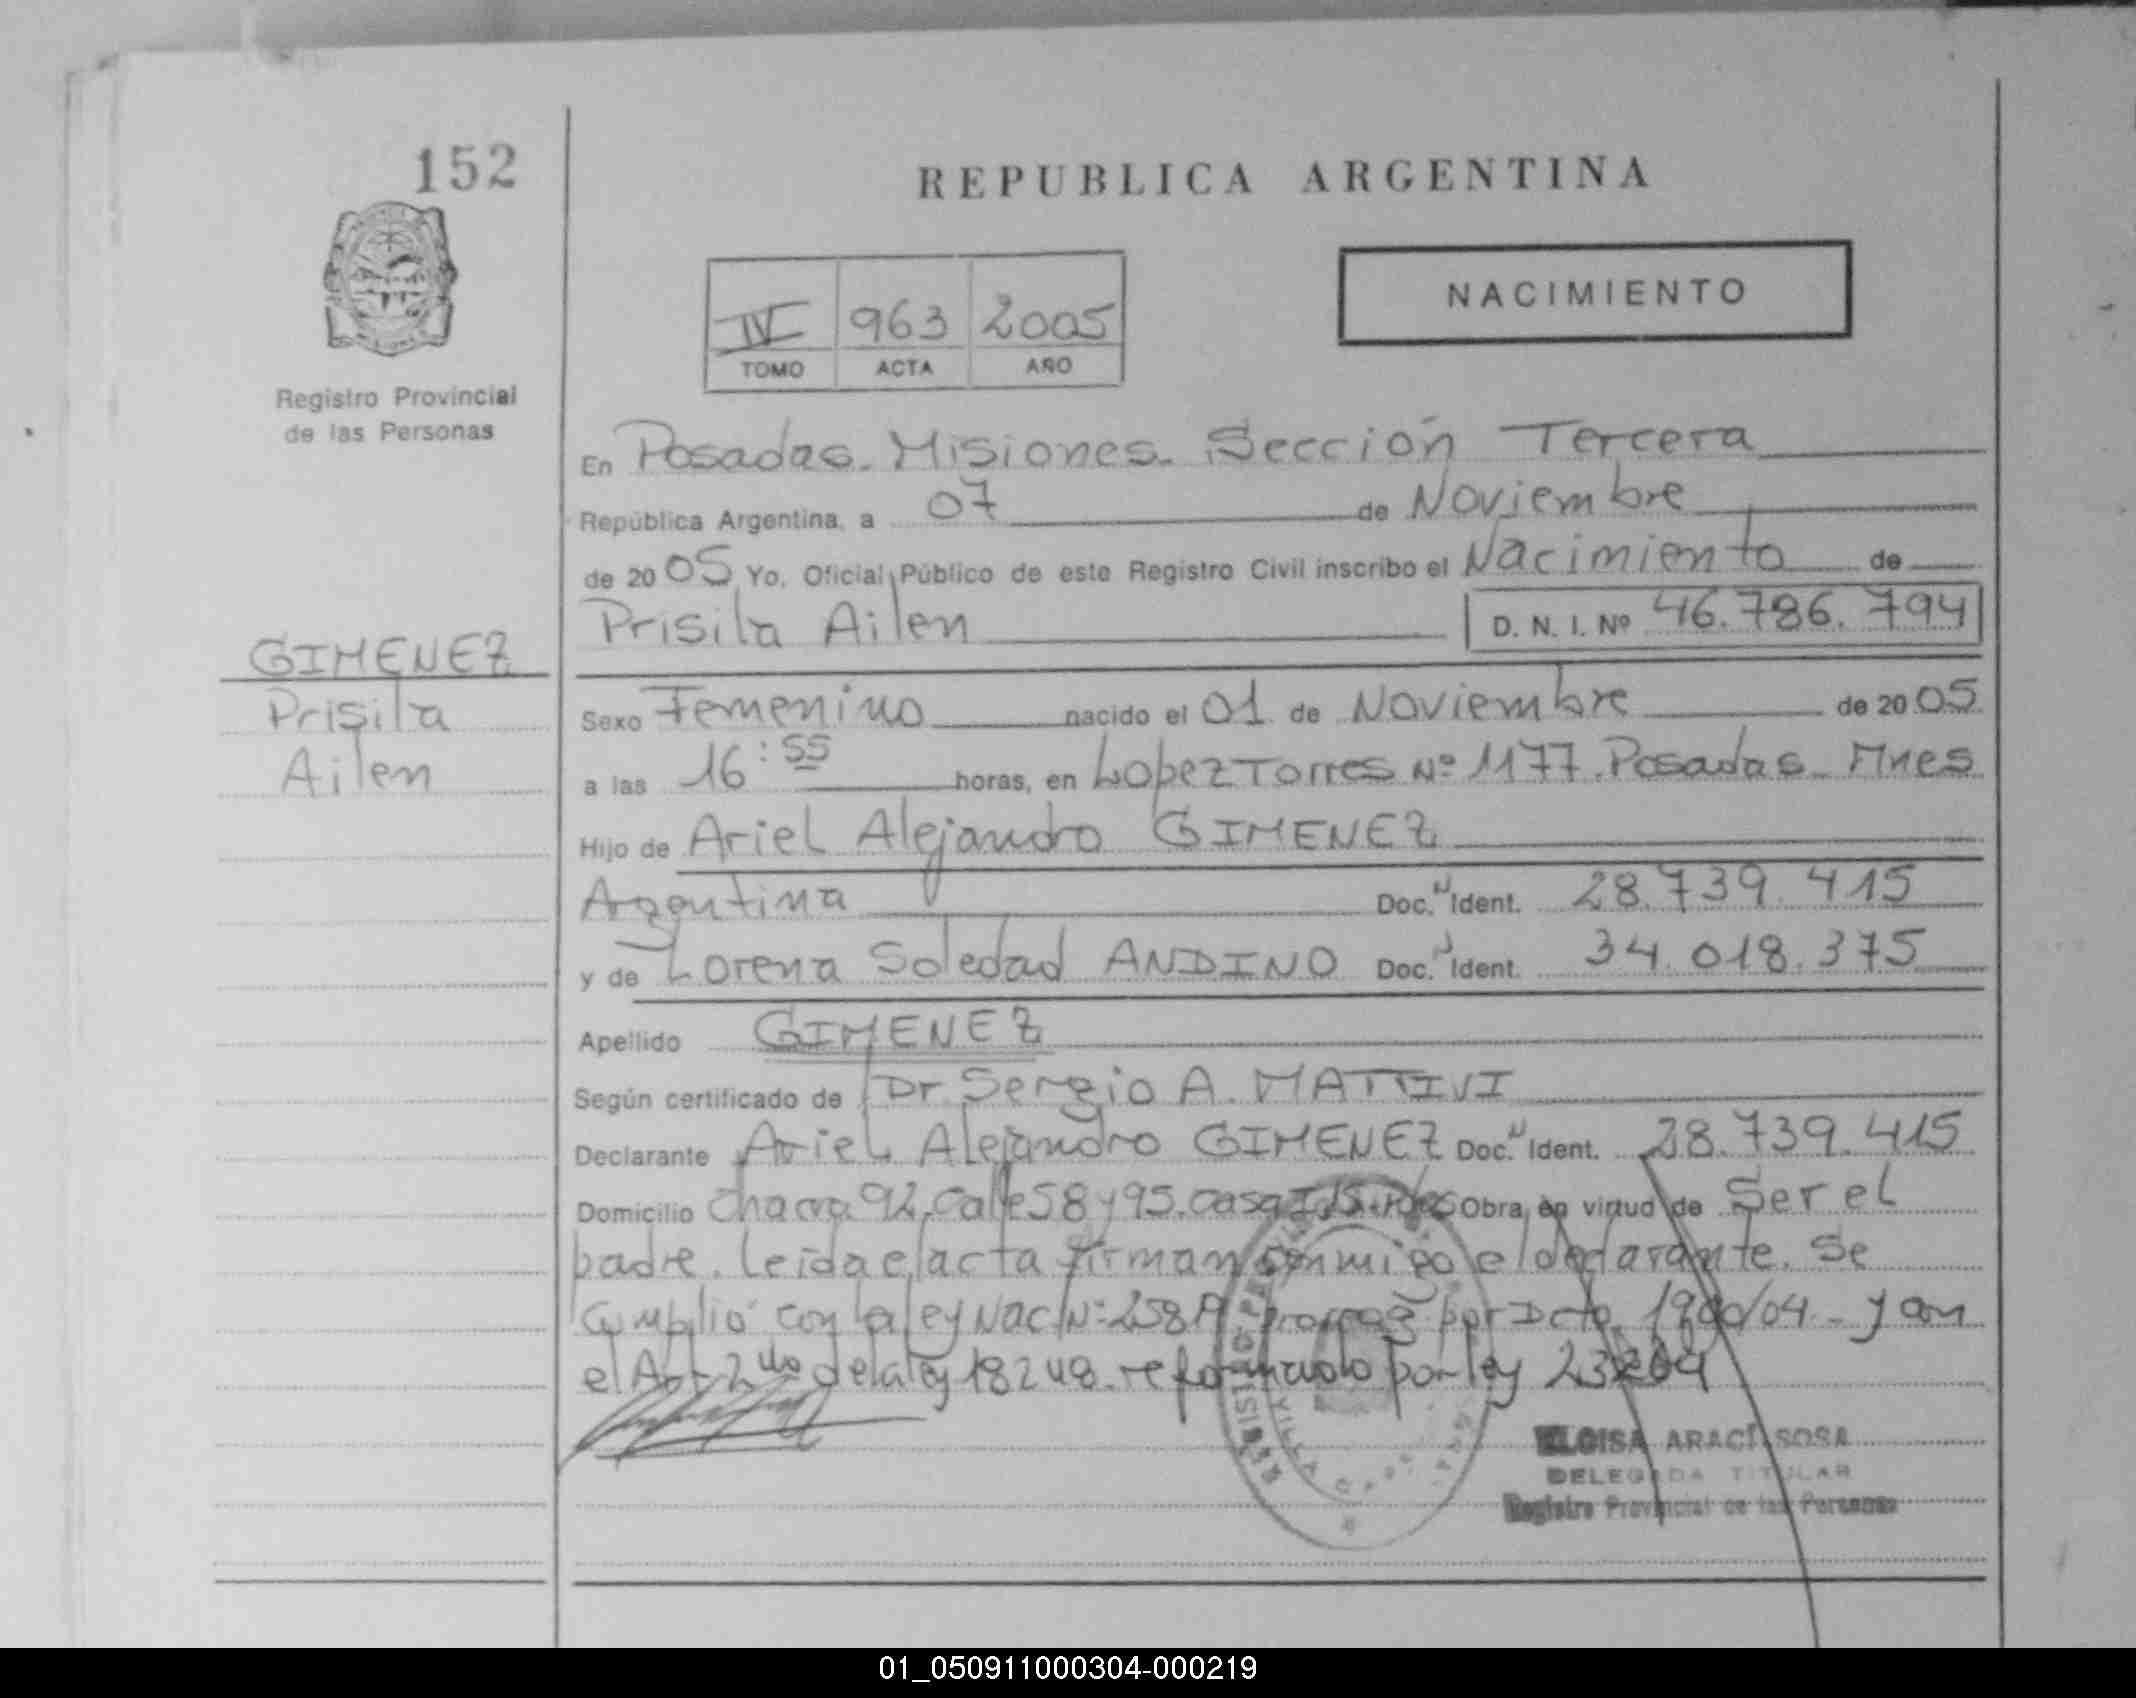 152
REPUBLICA ARGENTINA
NACIMIENTO
IV 963 2005
TOMO ACTA AÑO
Registro Provincial
de las Personas
En Posadas. Misiones. Sección Tercera
República Argentina, a 07 de Noviembre
de 2005 Yo, Oficial Público de este Registro Civil inscribo el Nacimiento de
Prisila Ailen D. N. I. Nº 46.786.794
GIMENEZ
Prisila
Ailen
Sexo Femenino nacido el 01 de Noviembre de 2005
a las 16:55 horas, en Lopez Torres Nº 1177. Posadas. Mnes
Hijo de Ariel Alejandro GIMENEZ
Argentina Doc. Ident. 28.739.415
y de Lorena Soledad ANDINO Doc. Ident. 34.018.375
Apellido GIMENEZ
Según certificado de Dr. Sergio A. MATTIVI
Declarante Ariel Alejandro GIMENEZ Doc. Ident. 28.739.415
Domicilio Chacra 92. Calle 58 y 95. Casa Obra en virtud de Ser el
padre. Leida el acta firman conmigo el declarante. Se
Cumplió con la ley Nac Nº por Dcto 04 - y con
el Art 2 de la ley 18248. reformado por ley
ELOISA ARACI SOSA
DELEGADA TITULAR
Registro Provincial de las Personas
01_050911000304-000219